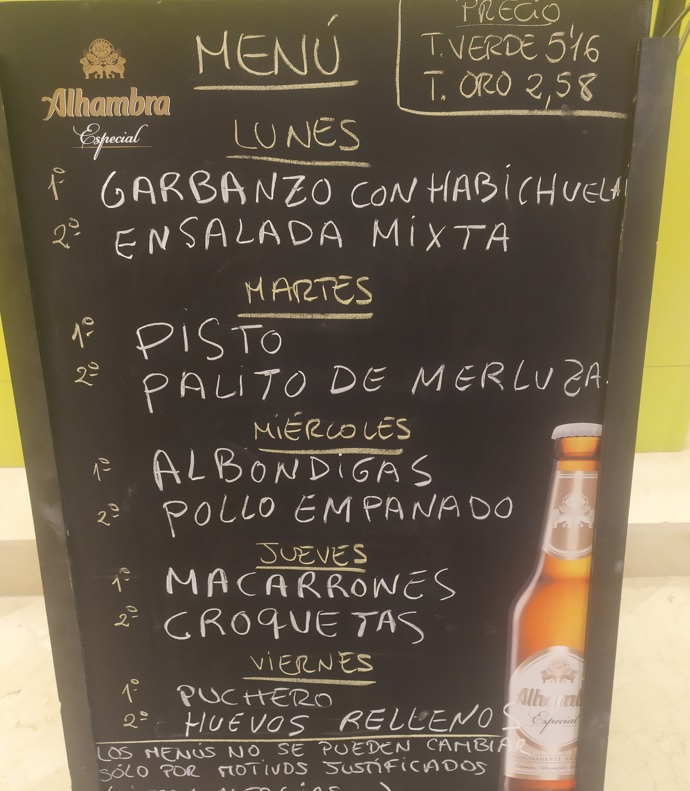 Alhambra
Especial
MENÚ
PRECIO
T. VERDE 5'16
T. ORO 2,58
LUNES
1º GARBANZO CON HABICHUELA
2º ENSALADA MIXTA
MARTES
1º PISTO
2º PALITO DE MERLUZA.
MIÉRCOLES
1º ALBONDIGAS
2º POLLO EMPANADO
JUEVES
1º MACARRONES
2º CROQUETAS
VIERNES
1º PUCHERO
2º HUEVOS RELLENOS
LOS MENÚS NO SE PUEDEN CAMBIAR
SÓLO POR MOTIVOS JUSTIFICADOS
Alhamb
Especial